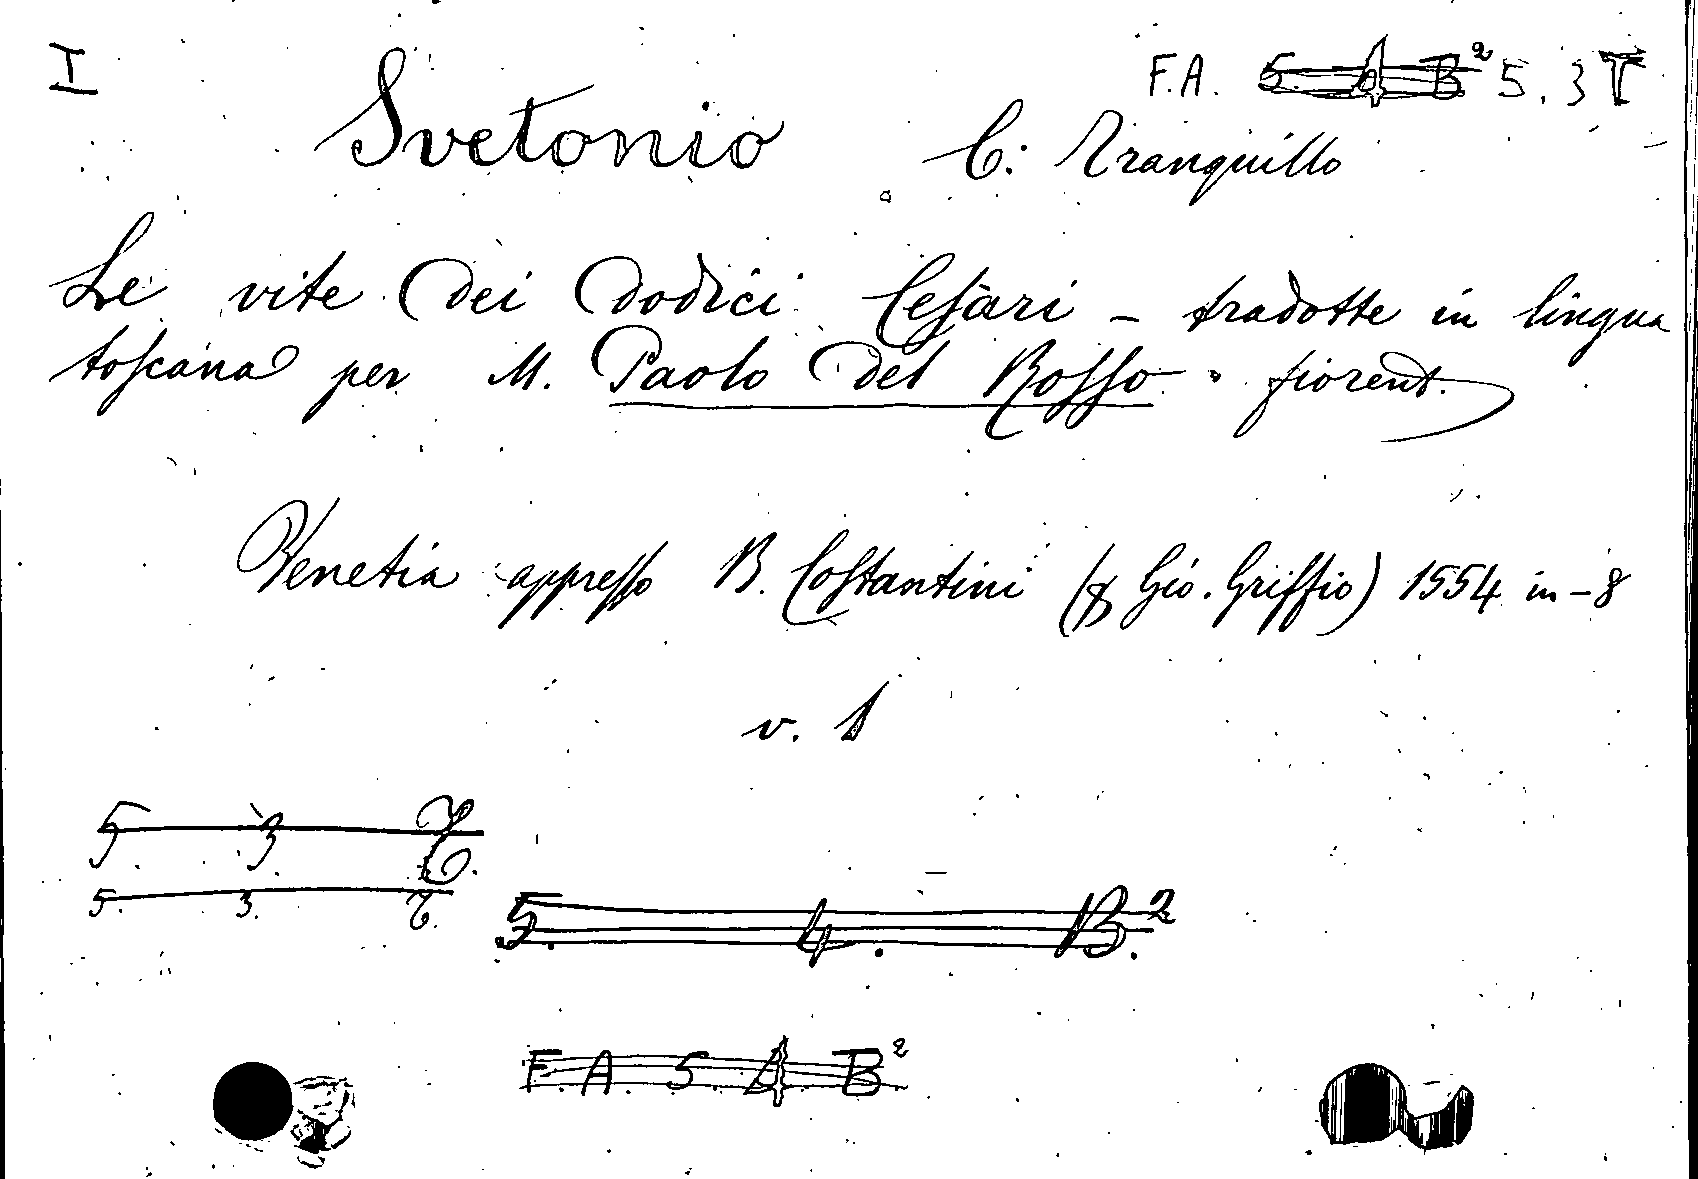 I
F.A. 5 4 B² 5. 3 T
Svetonio C: Tranquillo
Le vite dei dodici Cesari – tradotte in lingua
toscana per M. Paolo del Rosso – fiorent.
Venetia appresso B. Costantini (p Gio. Griffio) 1554 in-8
v. 1
5. 3. T.
5. 3. T.
5. 4. B.²
F. A. 5. 4 B²